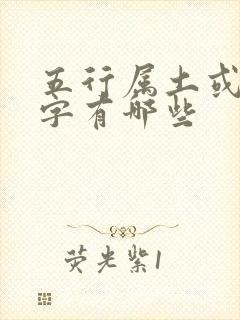 五行属土或
字有哪些
荧光紫1